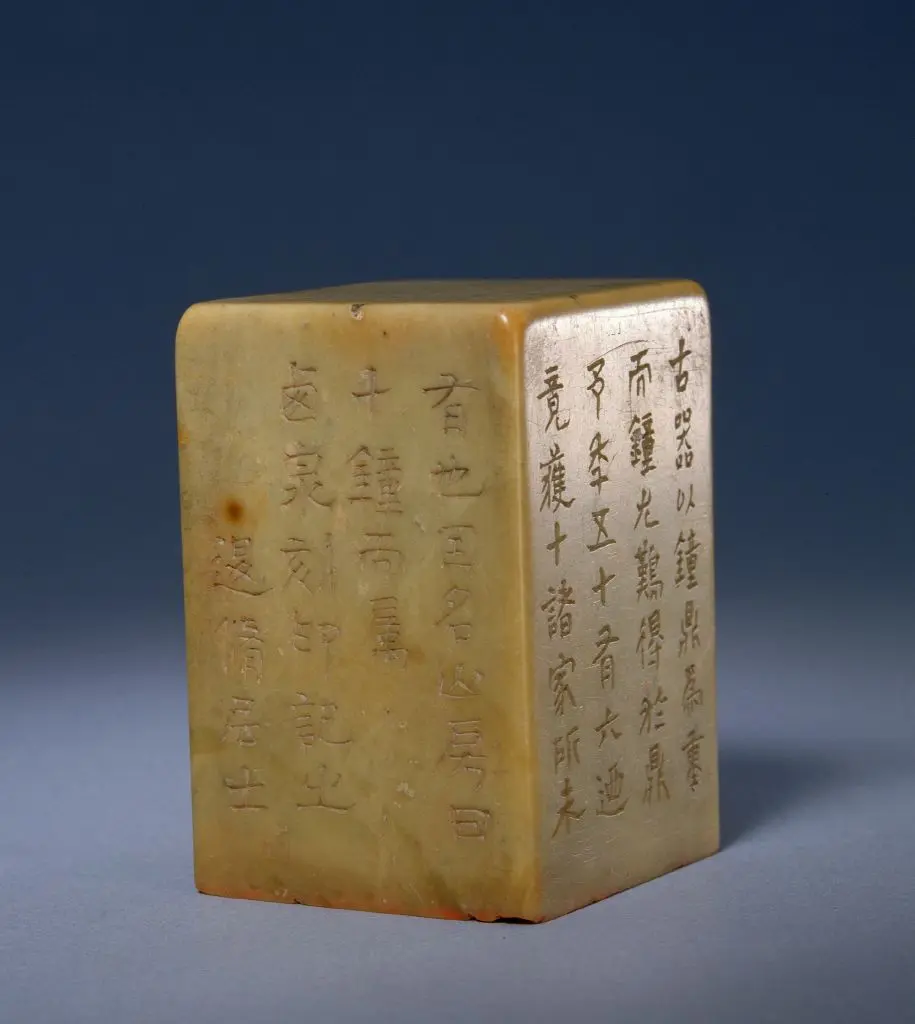 古器以鐘鼎爲重
而鐘尤難得於鼎
予年五十有六迺
竟獲十諸家所未
有也因名山房曰
十鐘而屬
鹵泉刻印記之
退脩居士